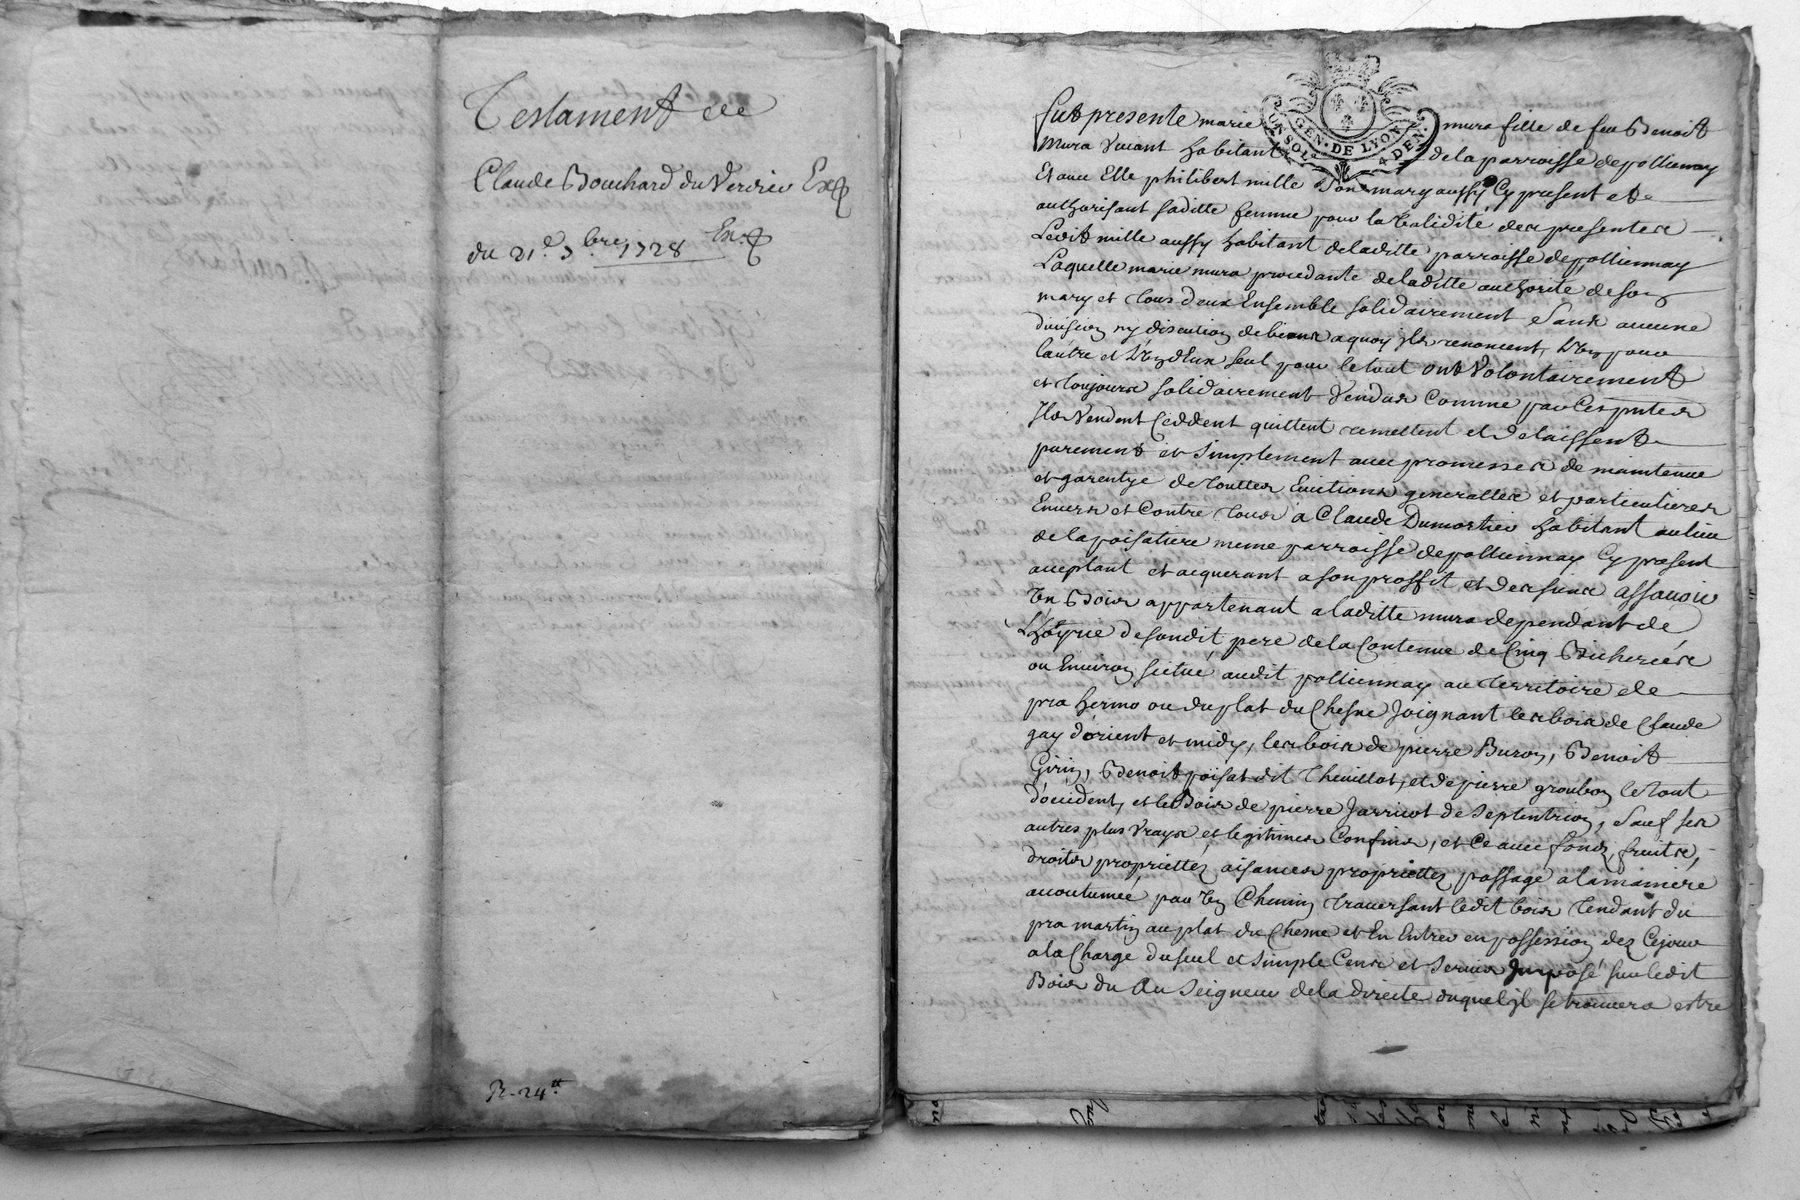 Testament de
Claude Bouchard du Verdier Ex
du 21e 9bre 1728 Ex
R. 24tt
GEN. DE LYON
UN SOL 4 DEN.
Fut presente marie mura fille de feu Benoit
Mura Vivant habitant de la parroisse de pollionnay
Et avec Elle philibert mille Son mary aussy Cy present et
authorisant saditte femme pour la Validité des presentes
Ledit mille aussy habitant de laditte parroisse de pollionnay
Laquelle marie mura procedante de laditte authorité de son
mary et tous deux Ensemble solidairement Sans aucune
division ny discution de biens a quoy ils renoncent, L'un pour
l'autre et L'un d'Eux seul pour le tout ont Volontairement
et toujours solidairement Vendus Comme par Ces pntes
Ils Vendent Ceddent quittent remettent et delaissent
purement et Simplement avec promesses de maintenue
et garentye de touttes Evictions generalles et particulieres
Envers et Contre tous a Claude Dumortier habitant au lieu
de la poisatiere meme parroisse de pollionnay Cy present
aceptant et acquerant a son proffit et des siens assavoir
Un Bois appartenant a laditte mura dependant de
L'hoyrie de sondit pere de la Contenue de Cinq Bicherées
ou Environ scitué audit pollionnay au territoire de
pra hermo ou du plat du Chesne Joignant les bois de Claude
gay d'orient et midy, les bois de pierre Buron, Benoit
Girin, Benoit poisat dit Thevillot, et de pierre groubon le tout
d'occident, et le Bois de pierre Jarricot de Septentrion, Sauf ses
autres plus Vrays et legitimes Confins, et Ce avec fonds, fruits,
droits proprietez aisances proprietez passage a la maniere
acoutumée par Un Chemin traversant ledit bois tendant du
pra martin au plat du Chesne et En Entrer en possession dez Cejour
a la Charge du seul et Simple Cens et Servis Imposé sur ledit
Bois du Au Seigneur de la directe duquel il se trouvera estre